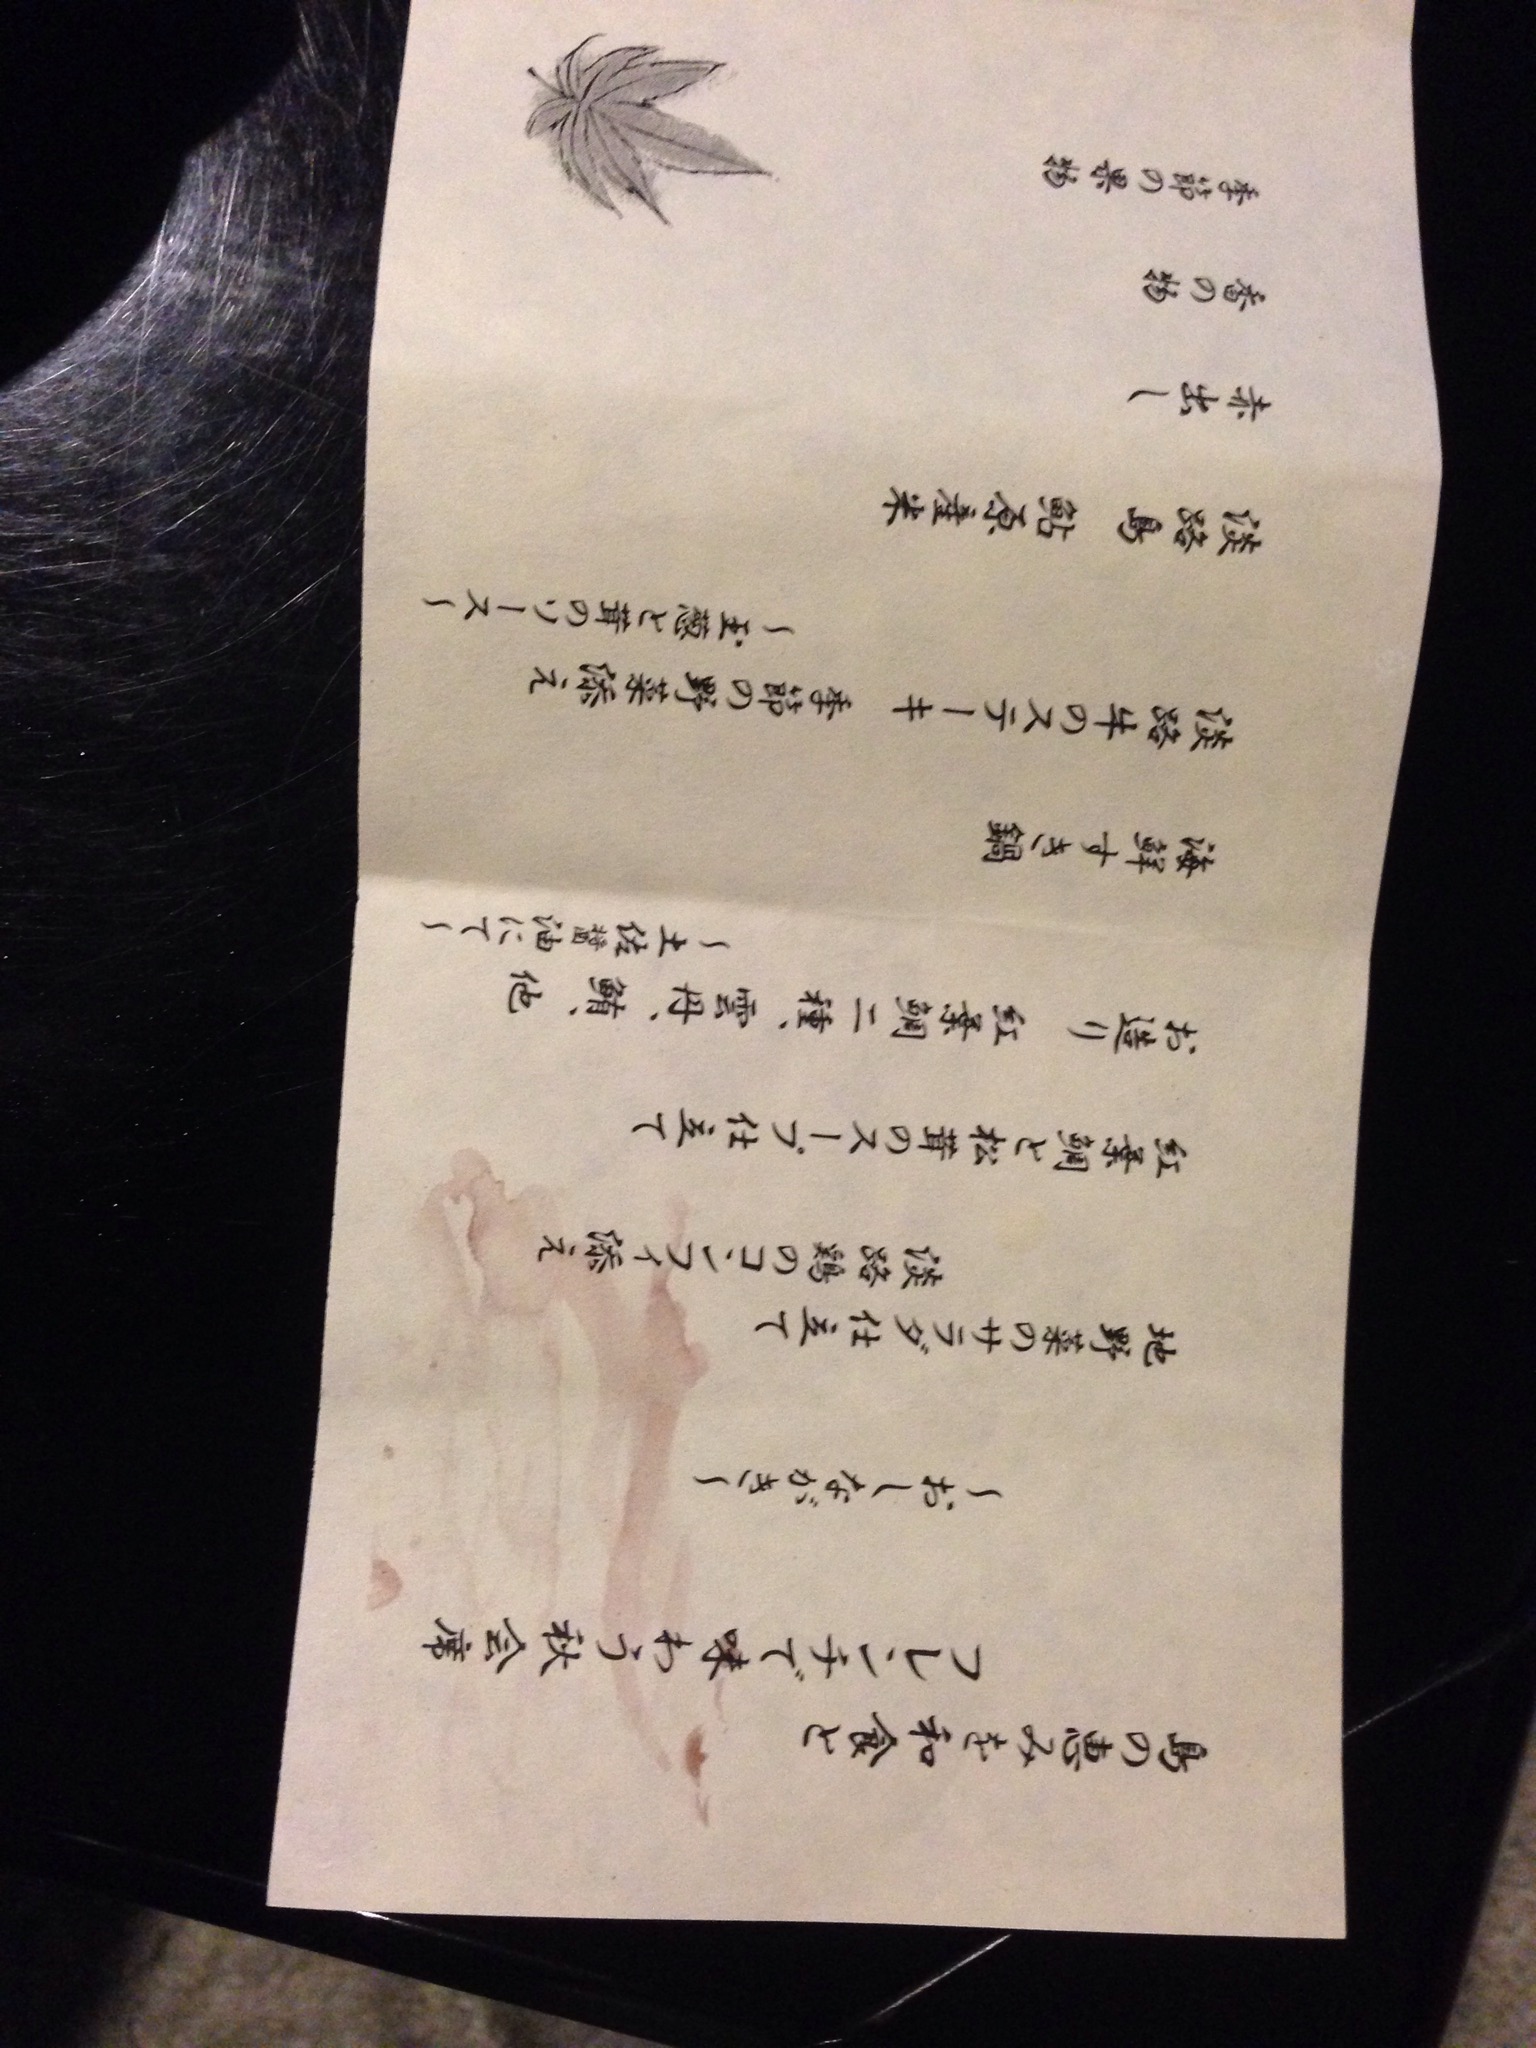 島の恵みを和食と
フレンチで味わう秋会席
～おしながき～
地野菜のサラダ仕立て
淡路鶏のコンフィ添え
紅葉鯛と松茸のスープ仕立て
お造り　紅葉鯛二種、雲丹、鯖、他
～土佐醤油にて～
海鮮すき鍋
淡路牛のステーキ　季節の野菜添え
～玉葱と茸のソース～
淡路島　鮎原産米
赤出し
香の物
季節の果物